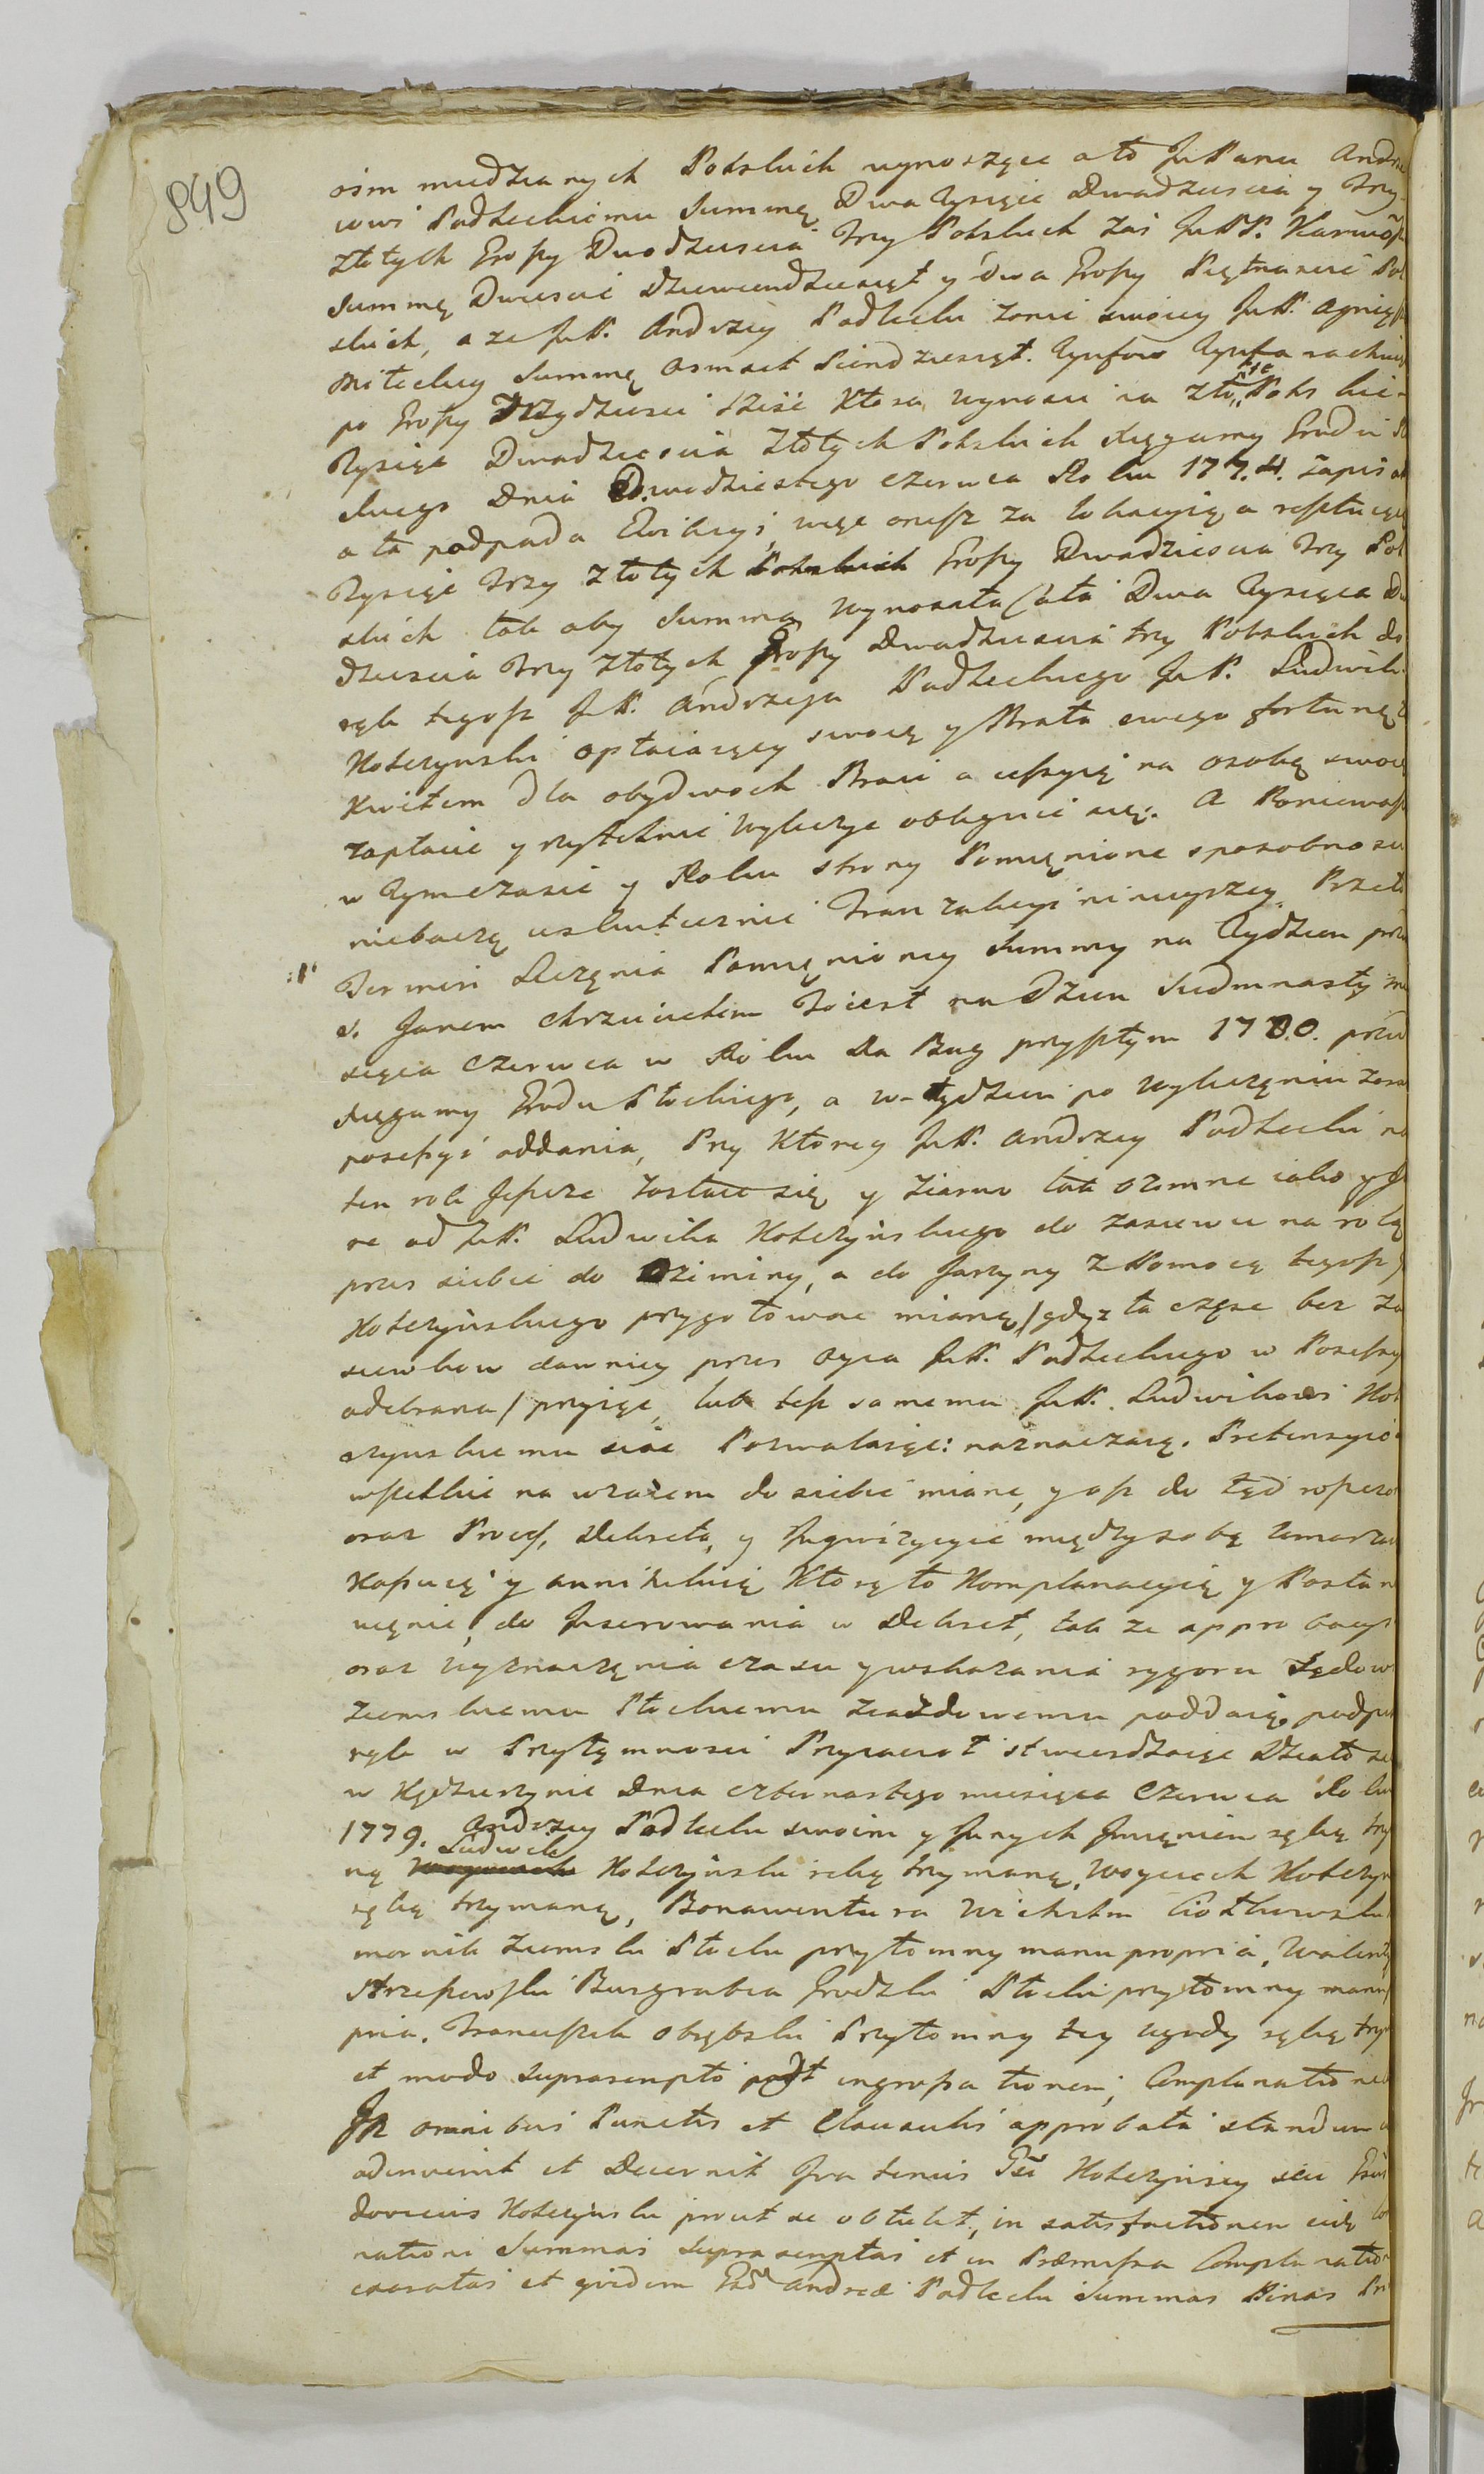 849
osm miedzianych Polskich wynoszące a to JmPanu Andrze
iowi Podleckiemu Summę Dwa Tysiące Dwadziescia y Trzy
złotych Groszy Dwadziescia Trzy Polskich zas JmPP. Karwosz
Summę Dwiescie Dziewiendziesiąt y dwa Groszy Piętnascie Pol
skich, a ze JmP. Andrzey Podlecki zonie swoiey JmP. Agnieszk
Mileckiey Summę osmset Piendziesiąt. Tynfow Tynfa rachuiąc
po Groszy Trzydziesci sześć Ktora wynosi na złte Polskie
Tysiąc Dwadziescia Złotych Polskich Xięgamy Grodu Pł
ckiego Dnia Dwudziestego Czerwca Roku 1774. zapisał
a ta podpada Ewikcyi, więc onesz za lokacyią a resztuiące
Tysiąc Trzy złotych Polskich Groszy Dwadziescia Trzy Pol
skich tak aby Summa wynosała cała Dwa Tysiąca Dwa
dziescia Trzy złotych Groszy Dwadziescia trzy Polskich do
rąk tegosz JmP. Andrzeja Podleckiego JmP. Ludwik
Kolczynski opłaiaiący swoię y Brata swego fortunę z
Kwitem dla obydwoch Braci a cessyią na osobę swoią
zapłacić y rzytelnie Wyliczyc obliguie się. A Poniewasz
w Tymczasie y Roku strony Pomięnione sposobnosci
niebaczą uskutecznić Tranzakcyi ninieyszey. Przeto
:/: Termin Liczęnia Pomięnioney Summy na Tydzien przed
S. Janem Chrzcicielem To iest na Dzien Siedmnasty mie
siąca Czerwca w Roku Da Bug przyszłym 1780. przed
Xięgamy Grodu Płockiego, a w tydzien po Wyliczęniu zosta
possessyi oddania, Przy Ktorey JmP. Andrzey Podlecki na
ten rok Jeszcze zostaie się y ziarno tak ozimne iako y Ja
re od JmP. Ludwika Kolczynskiego do zasiewu na rolą
przes siebie do Oziminy, a do Jarzyny z Pomocą tegosz J
Kolczynskiego przygotowac mianą / gdyz ta częsc bez za
siewkow dawniey przes Oyca JmP. Podleckiego w Possessyą
odebrana / przyiąc, lub tesz samemu JmP. Ludwikowi Kol
czynskiemu siac Pozwalaiąc: naznaczaią. Pretensyie
wszelkie na wzaiem do siebie miane, y asz do tąd roszczo
oraz Process, Dekreta, y Jnqwizycyie między sobą Umarzai
Kassuią y annihiluią Ktorą to Komplanacyią y Postan
więnie, do Jnserowania w Dekret, tak ze approbacyi
oraz wyznaczęnia czasu y wskazania rygoru Sądow
Ziemskiemu Płockiemu zeazdowemu poddaią, podpi
rąk w Przytęmnosci Przyiacioł stwierdzaiąc Działo się
w Kędzierzynie Dnia czternastego miesiąca Czerwca Roku
1779. Andrzey Podlecki swoim y Jnnych Jmięniem ręką trzy
ną Ludwik Kolczynski ręką trzymaną, Woyciech Kolczyn
ręką trzymaną, Bonawentura Ciołkowski
mornik Ziemski Płocki przytomny manu propria, Walenty
Strzeszewski Burgrabia Grodzki Płocki przytomny manu
pria. Franciszek obrębski Przytomny tey ugody ręką trzy
et modo suprascripto post ingrossationem, Complanationi
Jn omnibus Punctis et Clausulis approbata standum
adinvenit et Decernit Jra tenius Gsi Kolczynscy seu Gsus
dovicus Kolczynski prout se obtulit, in satisfactionem
nationi Summas supra scriptas et in Præmissa Complanation
exaratas et quidem Gso Andreæ Podlecki Summas Binas